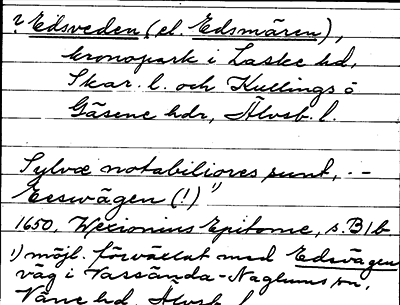 ? Edsveden (el. Edsmären),
kronopark i Laske hd,
Skar. l. och Kullings o
Gäsene hdr, Älvsb. l.
Sylvæ notabiliores sunt, --
Eeswägen (!) 1)
1650, Wexionius Epitome, s. B1b
1) möjl. förväxlat med Edsvägen
väg i Vassända-Naglums sn,
Väne hd, Älvsb. l.